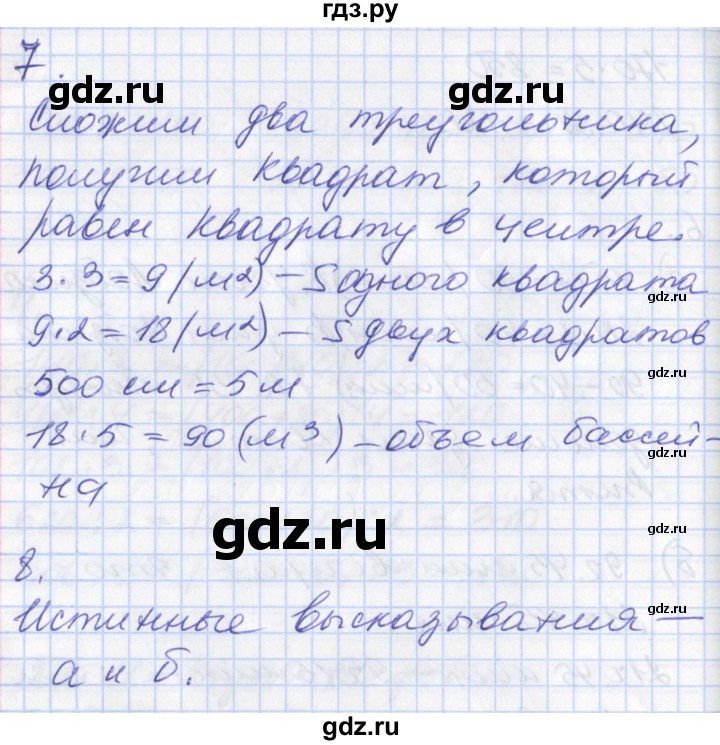 гдз.ру
7.
gdz.ru gdz.ru
Сложим два треугольника,
gdz.ru
получим квадрат, который
равен квадрату в центре.
3·3=9 (м2) – S одного квадрата
gdz.ru
9·2=18 (м2) – S двух квадратов
gdz.ru
500 см = 5 м
18·5=90 (м3) – объем бассей-
gdz.ru
на
gdz.ru
gdz.ru
8.
Истинные высказывания –
gdz.ru
а и б.
gdz.ru
gdz.ru